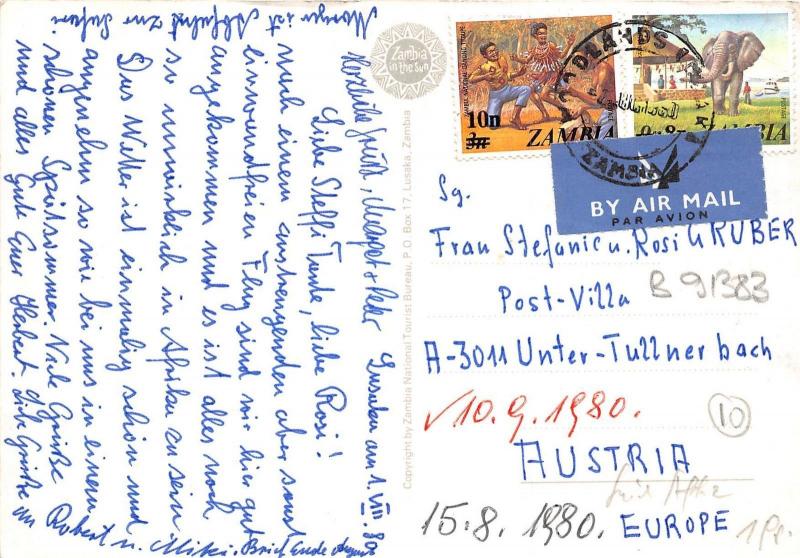 Lusaka am 1. VIII. 80
Liebe Steffi Tante, liebe Rosi!
nach einem anstrengenden aber sonst
einwandfreien Flug sind wir hier gut
angekommen und es ist alles noch
so unwirklich in Afrika zu sein.
Das Wetter ist einmalig schön und
angenehm so wie bei uns in einem
schönen Spätsommer. Viele Grüße
und alles Gute Euer Herbert. Liebe Grüße an
Robert u. Miki. Brief Ende August
Morgen ist Abfahrt zur Safari.
Herzliche Grüße, Margot + Peter
Zambia
in the Sun
Copyright by Zambia National Tourist Bureau, P.O. Box 17, Lusaka, Zambia
10n
3n
ZAMBIA
ZAMBIA
ZAMBIA
BY AIR MAIL
PAR AVION
Sg.
Frau Stefanie u. Rosi GRUBER
Post-Villa
B 91383
A-3011 Unter-Tullnerbach
√10.9.1980.
10
AUSTRIA
15.8.1980.
EUROPE